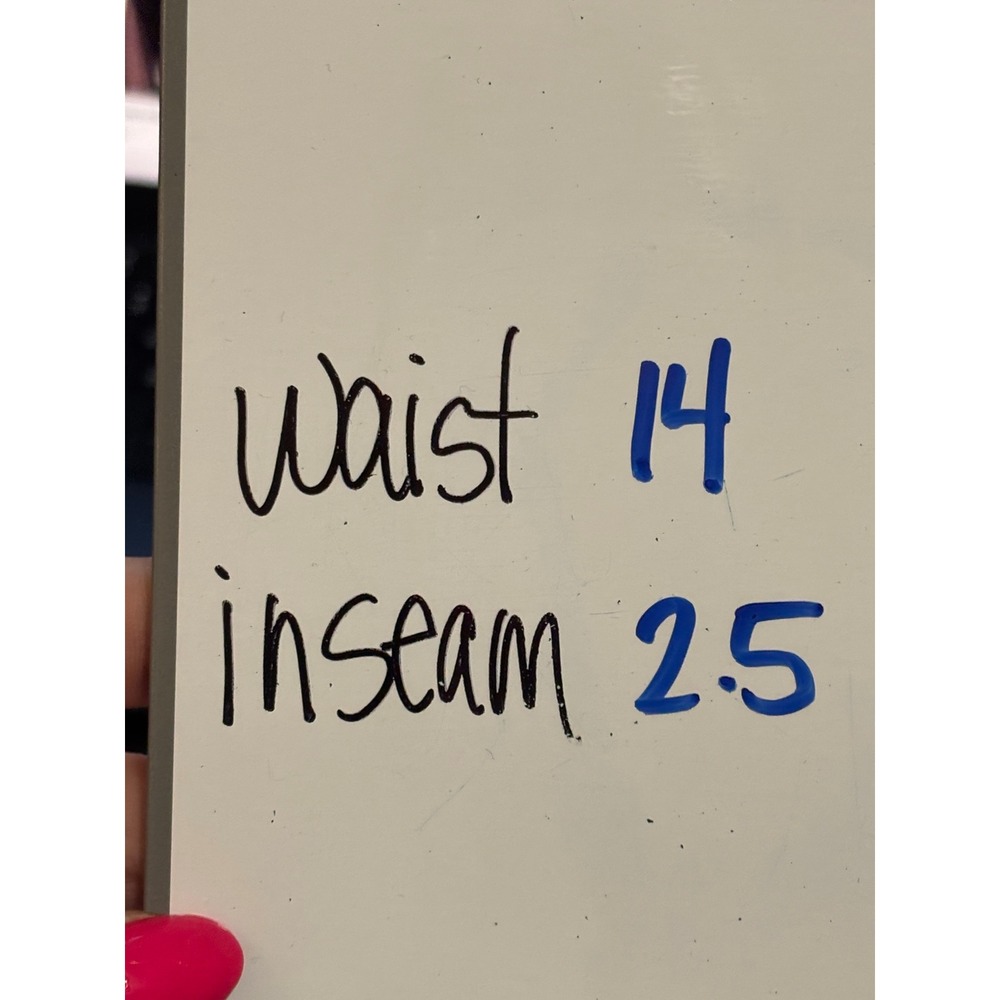 waist 14
inseam 2.5